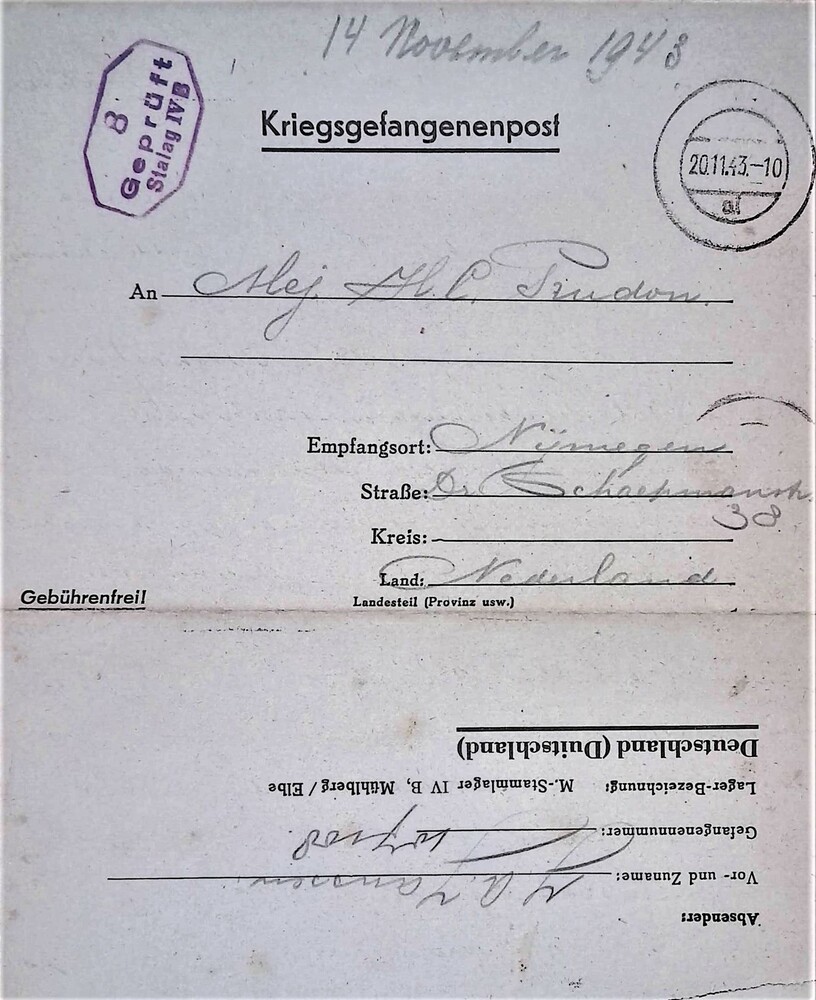 14 November 1943
8
Geprüft
Stalag IVB
Kriegsgefangenenpost
20.11.43.-10
An Mej. H.C. Trudon.
Empfangsort: Nijmegen
Straße: Dr. Schaepmanstr.
38
Kreis:
Land: Nederland
Landesteil (Provinz usw.)
Gebührenfrei!
Absender:
Vor- und Zuname: Janssen.
Gefangenennummer:
Lager-Bezeichnung: M.-Stammlager IV B, Mühlberg / Elbe
Deutschland (Duitschland)